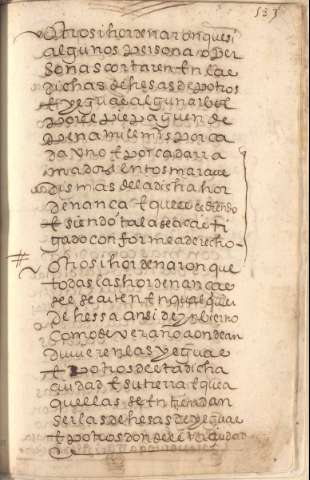 533
Otrosi hordenaron que si
algunos persona o per
sonas cortaren en las
dichas dehesas de potros
e yeguas algun arbol
por el pie paguen de
pena mil mis por ca
da uno e por cada rra
ma dos cientos marave
dis mas de la dicha hor
denança e que
e siendo tala sea casti
gado conforme a derecho
Otrosi hordenaron que
todas las hordenanças
se en qualquier
dehessa ansi de ynbierno
como de verano a onde an
duuieren las yeguas
e potros desta dicha
ciudad e su tierra e que a
quellas se entiendan
ser las dehesas de yeguas
e potros donde esta ciudad